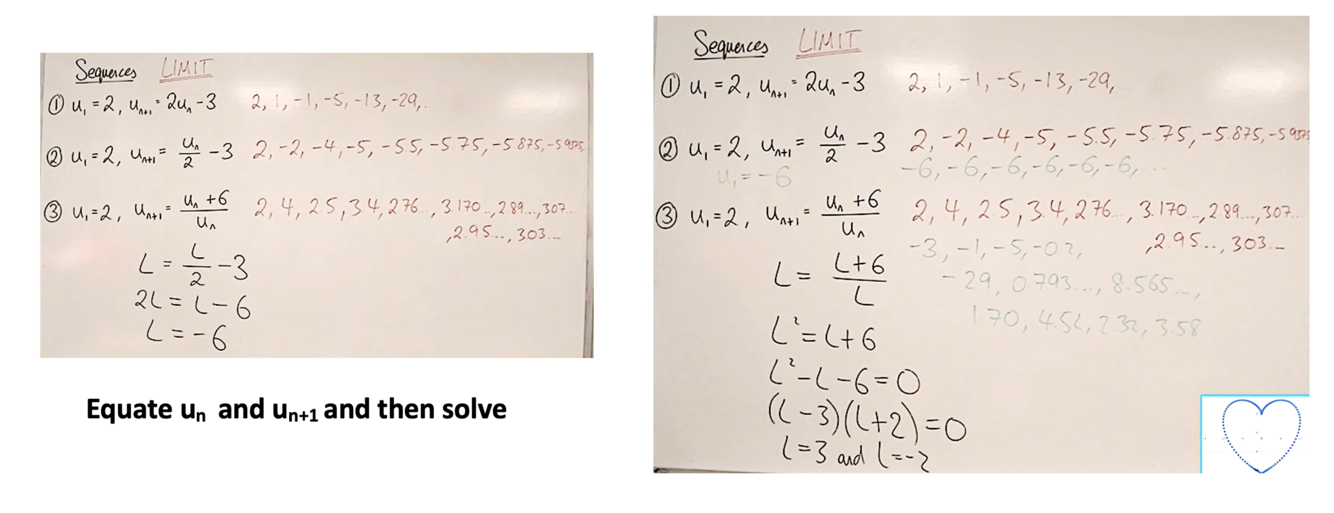 Sequences LIMIT
① u₁ = 2, uₙ₊₁ = 2uₙ - 3 2, 1, -1, -5, -13, -29, ...
② u₁ = 2, uₙ₊₁ = uₙ/2 - 3 2, -2, -4, -5, -5.5, -5.75, -5.875, -5.9375,
③ u₁ = 2, uₙ₊₁ = (uₙ + 6)/uₙ 2, 4, 2.5, 3.4, 2.76..., 3.170..., 2.89..., 3.07...
, 2.95..., 3.03...
L = L/2 - 3
2L = L - 6
L = -6
Equate uₙ and uₙ₊₁ and then solve
Sequences LIMIT
① u₁ = 2, uₙ₊₁ = 2uₙ - 3 2, 1, -1, -5, -13, -29, ...
② u₁ = 2, uₙ₊₁ = uₙ/2 - 3 2, -2, -4, -5, -5.5, -5.75, -5.875, -5.9375
u₁ = -6 -6, -6, -6, -6, -6, -6, ...
③ u₁ = 2, uₙ₊₁ = (uₙ + 6)/uₙ 2, 4, 2.5, 3.4, 2.76..., 3.170..., 2.89..., 3.07...
, 2.95..., 3.03...
-3, -1, -5, -0.2,
L = (L + 6)/L
-29, 0.793..., 8.565...,
1.70, 4.52, 2.32, 3.58
L² = L + 6
L² - L - 6 = 0
(L - 3)(L + 2) = 0
L = 3 and L = -2